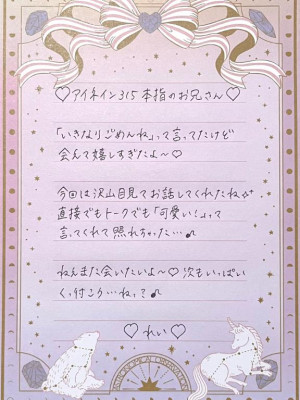 ♡アイネイン315本指のお兄さん♡
「いきなりごめんね」って言ってたけど
会えて嬉しすぎたよ〜♡
今回は沢山目見てお話してくれたね✨
直接でもトークでも「可愛い!」って
言ってくれて照れちゃった…♪
ねえまた会いたいよ〜♡次もいっぱい
くっ付こう…ねっ?♪
♡れい♡